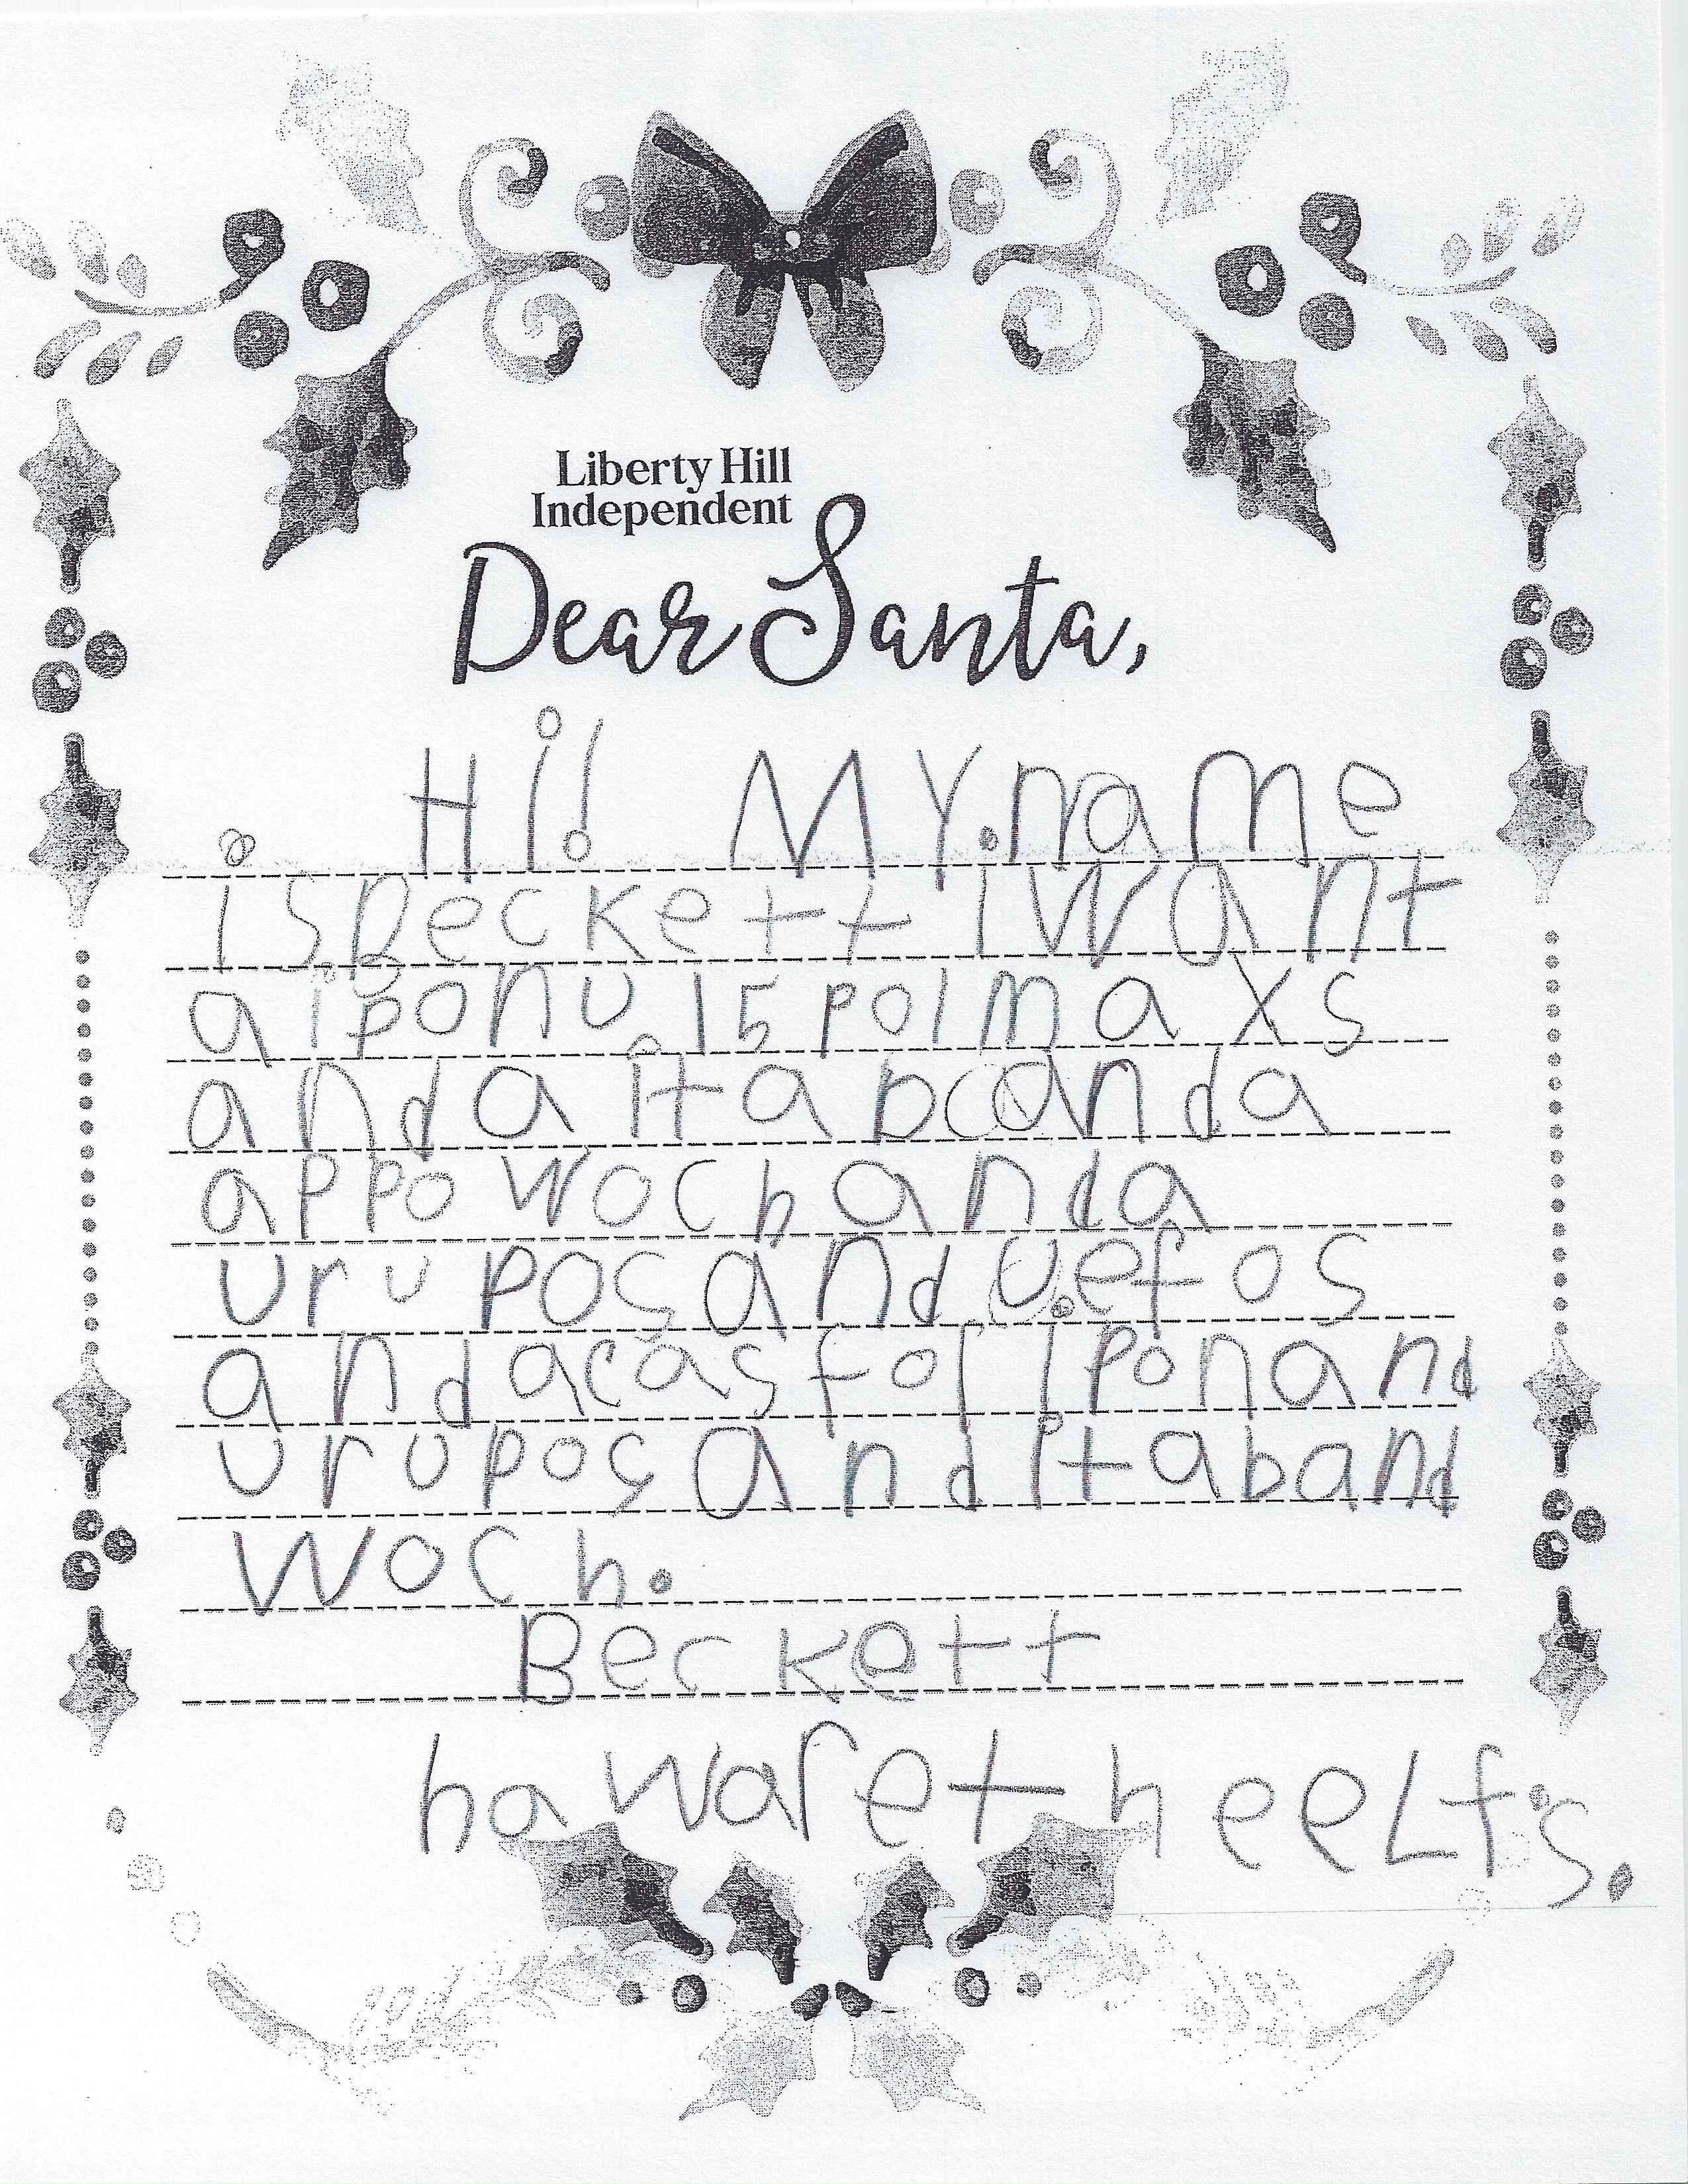 Liberty Hill
Independent
Dear Santa,
Hi! My name
is Beckett i want
a iponu 15 polmaxs
and a itab and a
appo woch and a
urupos and u.efos
and a cas fof ipon and
urupos and itab and
woch.
Beckett
ha waret he eLfs.